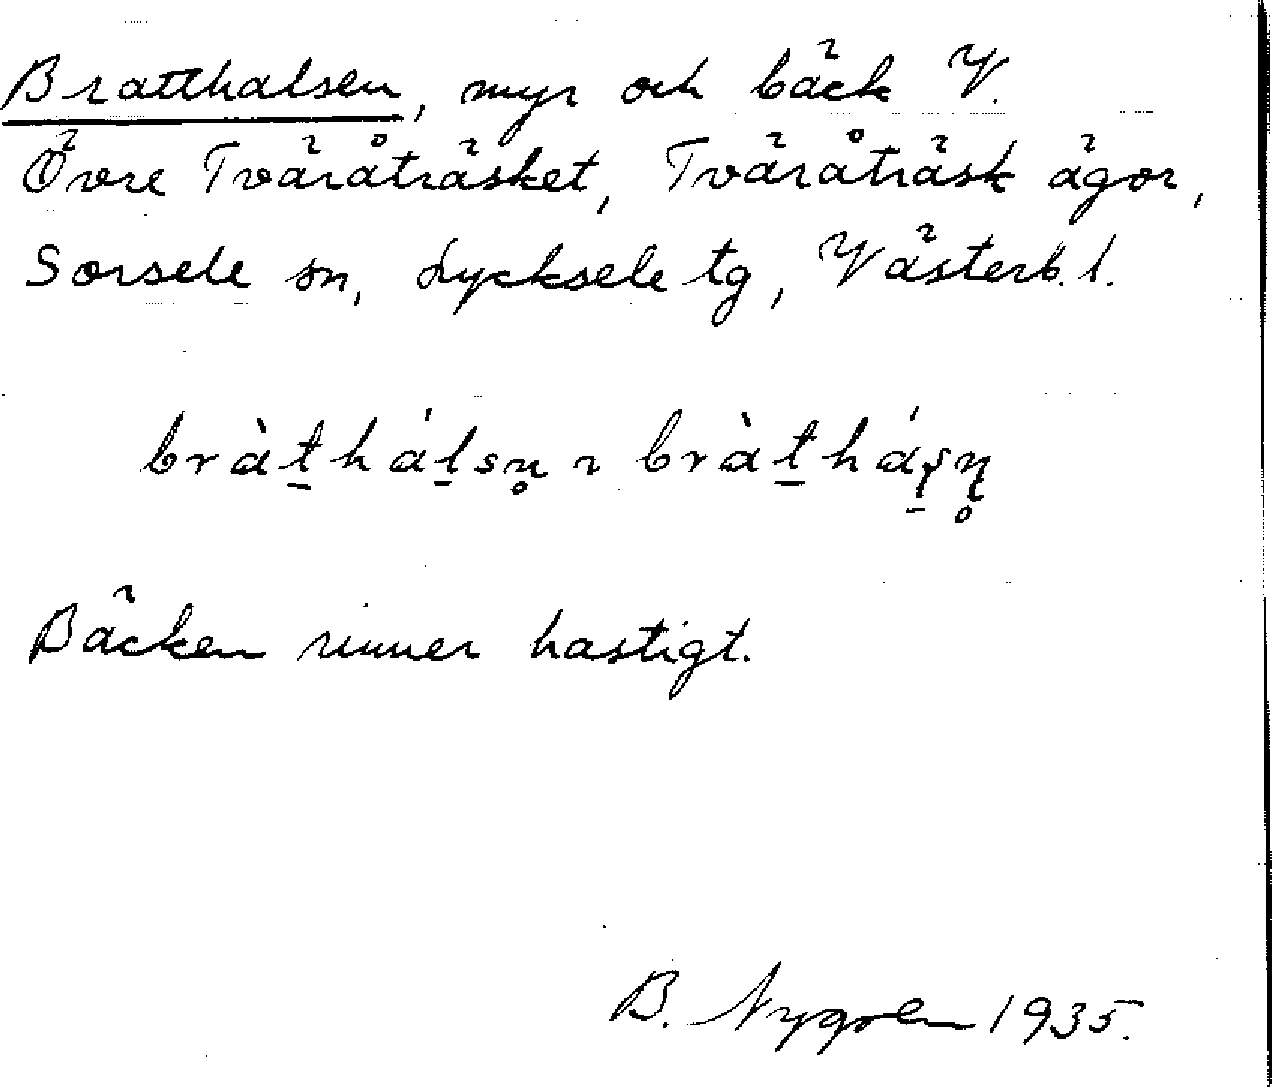 Bratthalsen, myr och bäck V.
Övre Tväråträsket, Tväråträsk ägor,
Sorsele sn, Lycksele tg, Västerb. l.
bràt̲hál̲sn̥ ~ bràt̲háṣ̲ṇ̥
Bäcken rinner hastigt.
B. Nygren 1935.